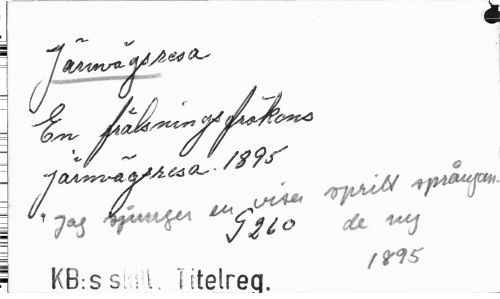 Järnvägsresa
En frälsningsfrökens
järnvägsresa. 1895
"Jag sjunger en visa sprill språngan
G260 de ny
1895
KB:s skill. Titelreg.